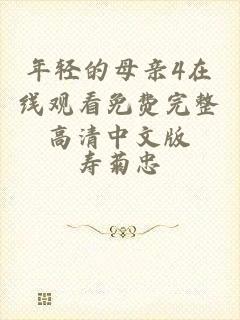 年轻的母亲4在
线观看免费完整
高清中文版
寿菊忠